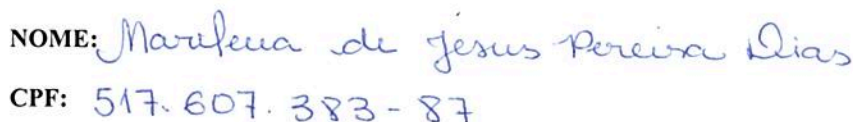 NOME: Marilena de Jesus Pereira Dias
CPF: 517.607.383-87